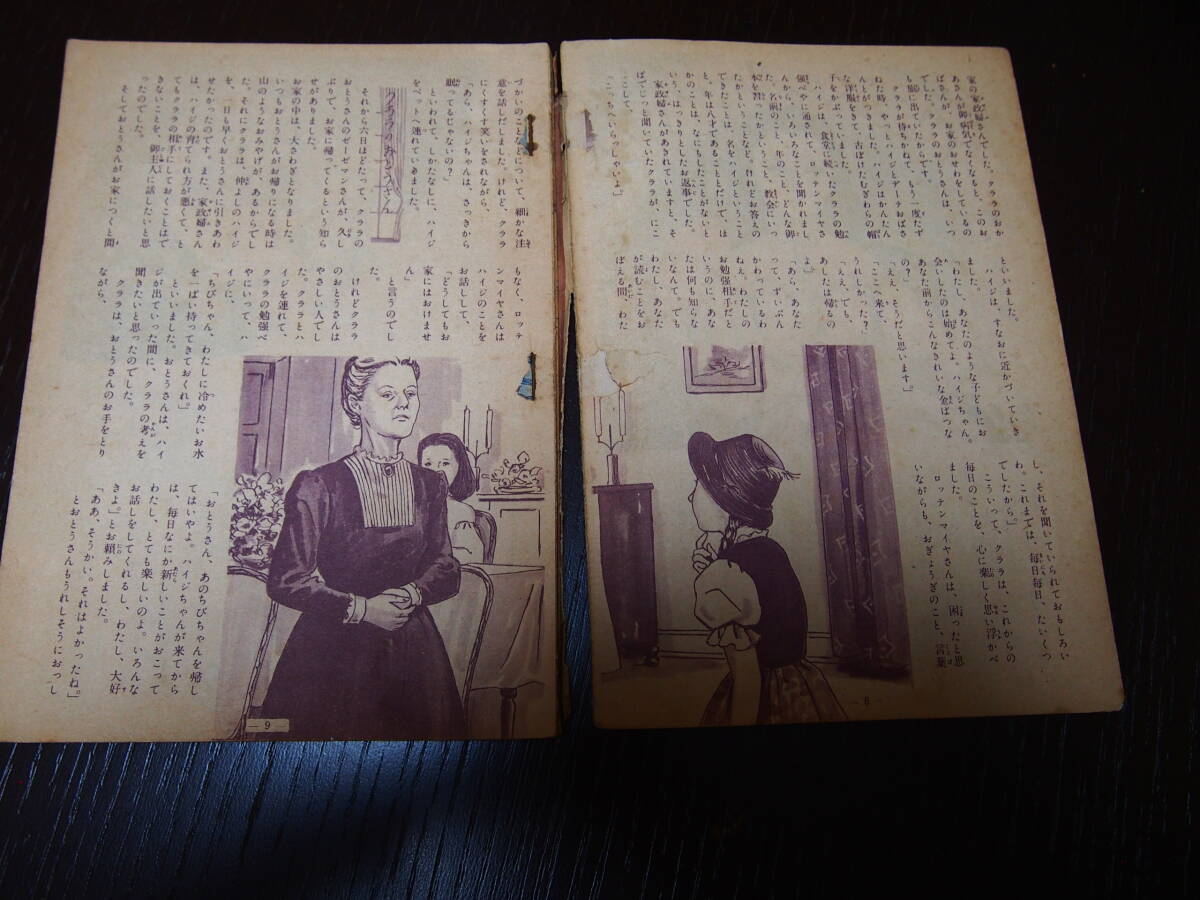 家の家政婦さんでした。クララのおか
あさんが御病気でなくなると、このお
ばさんが、お家のおせわをしているの
でした。クララのおとうさんは、いつ
も旅に出ていたからです。
クララが待ちかねて、もう一度たず
ねた時、やっとハイジとデーテおばさ
んとがつきました。ハイジはかんたん
な洋服をきて、古ぼけたむぎわらの帽
子をかぶっていました。
ハイジは、食堂に続いたクララの勉
強べやに通されて、ロッテンマイヤさ
んから、いろいろなことを聞かれまし
た。名前のこと、年のこと、どんな御
本を習ったかということ、教会にいっ
たかということなど。けれどお答えの
できたことは、名をハイジということ
と、年は八才であることだけで、ほ
かのことは、なにもしたことがないと
いう、はっきりとしたお返事でした。
家政婦さんがあきれていますと、そ
ばでじっと聞いていたクララが、にこ
にこして、
「こっちへいらっしゃいよ。」
といいました。
ハイジは、すなおに近かづいていき
ました。
「わたし、あなたのような子どもにお
会いしたのは始めてよ。ハイジちゃん。
あなた前からこんなきれいな金ぱつな
の？」
「ええ、そうだと思います」。
「ここへ来て、
うれしかった？」
「ええ、でも、
あしたは帰るの
よ」
「あら、あなた
って、ずいぶん
かわっているわ
ねえ。わたしの
お勉強相手だと
いうのに、あな
たは何も知らな
いなんて。でも
わたし、あなた
が読むことをお
ぼえる間、わた
し、それを聞いていられておもしろい
わ。これまでは、毎日毎日、たいくつ
でしたから」
こういって、クララは、これからの
毎日のことを、心に楽しく思い浮かべ
ました。
ロッテンマイヤさんは、困ったと思
いながらも、おぎょうぎのこと、言葉
— 8 —
づかいのことなどについて、細かな注
意を話しだしました。けれど、クララ
にくすくす笑いをされながら、
「あら、ハイジちゃんは、さっきから
眠ってるじゃないの？」
といわれて、しかたなしに、ハイジ
をベットへ連れていきました。
クララのおとうさん
それから六日ほどたって、クララの
おとうさんのゼーゼマンさんが、久し
ぶりで、お家に帰ってくるという知ら
せがありました。
お家の中は、大さわぎとなりました。
いつもおとうさんがお帰りになる時は
山のようなおみやげが、あるからでし
た。それにクララは、仲よしのハイジ
を、一日も早くおとうさんに引きあわ
せたかったのです。また、家政婦さん
は、ハイジの育てられ方が悪くて、と
てもクララの相手にしておくことはで
きないことを、御主人に話したいと思
ったのでした。
そしておとうさんがお家につくと間
もなく、ロッテ
ンマイヤさんは
ハイジのことを
お話しして、
「どうしてもお
家にはおけませ
ん」
と言うのでし
た。
けれどクララ
のおとうさんは
やさしい人でし
た。クララとハ
イジを連れて、
クララの勉強べ
やにいって、ハ
イジに、
「ちびちゃん、わたしに冷めたいお水
を一ぱい持ってきておくれ」
といいました。おとうさんは、ハイ
ジが出ていった間に、クララの考えを
聞きたいと思ったのでした。
クララは、おとうさんのお手をとり
ながら、
「おとうさん、あのちびちゃんを帰し
てはいやよ。ハイジちゃんが来てから
は、毎日なにか新しいことがおこって
わたし、とても楽しいのよ。いろんな
お話しをしてくれるし、わたし、大好
きよ」とお頼みしました。
「ああ、そうかい。それはよかったね」
とおとうさんもうれしそうにおっし
— 9 —